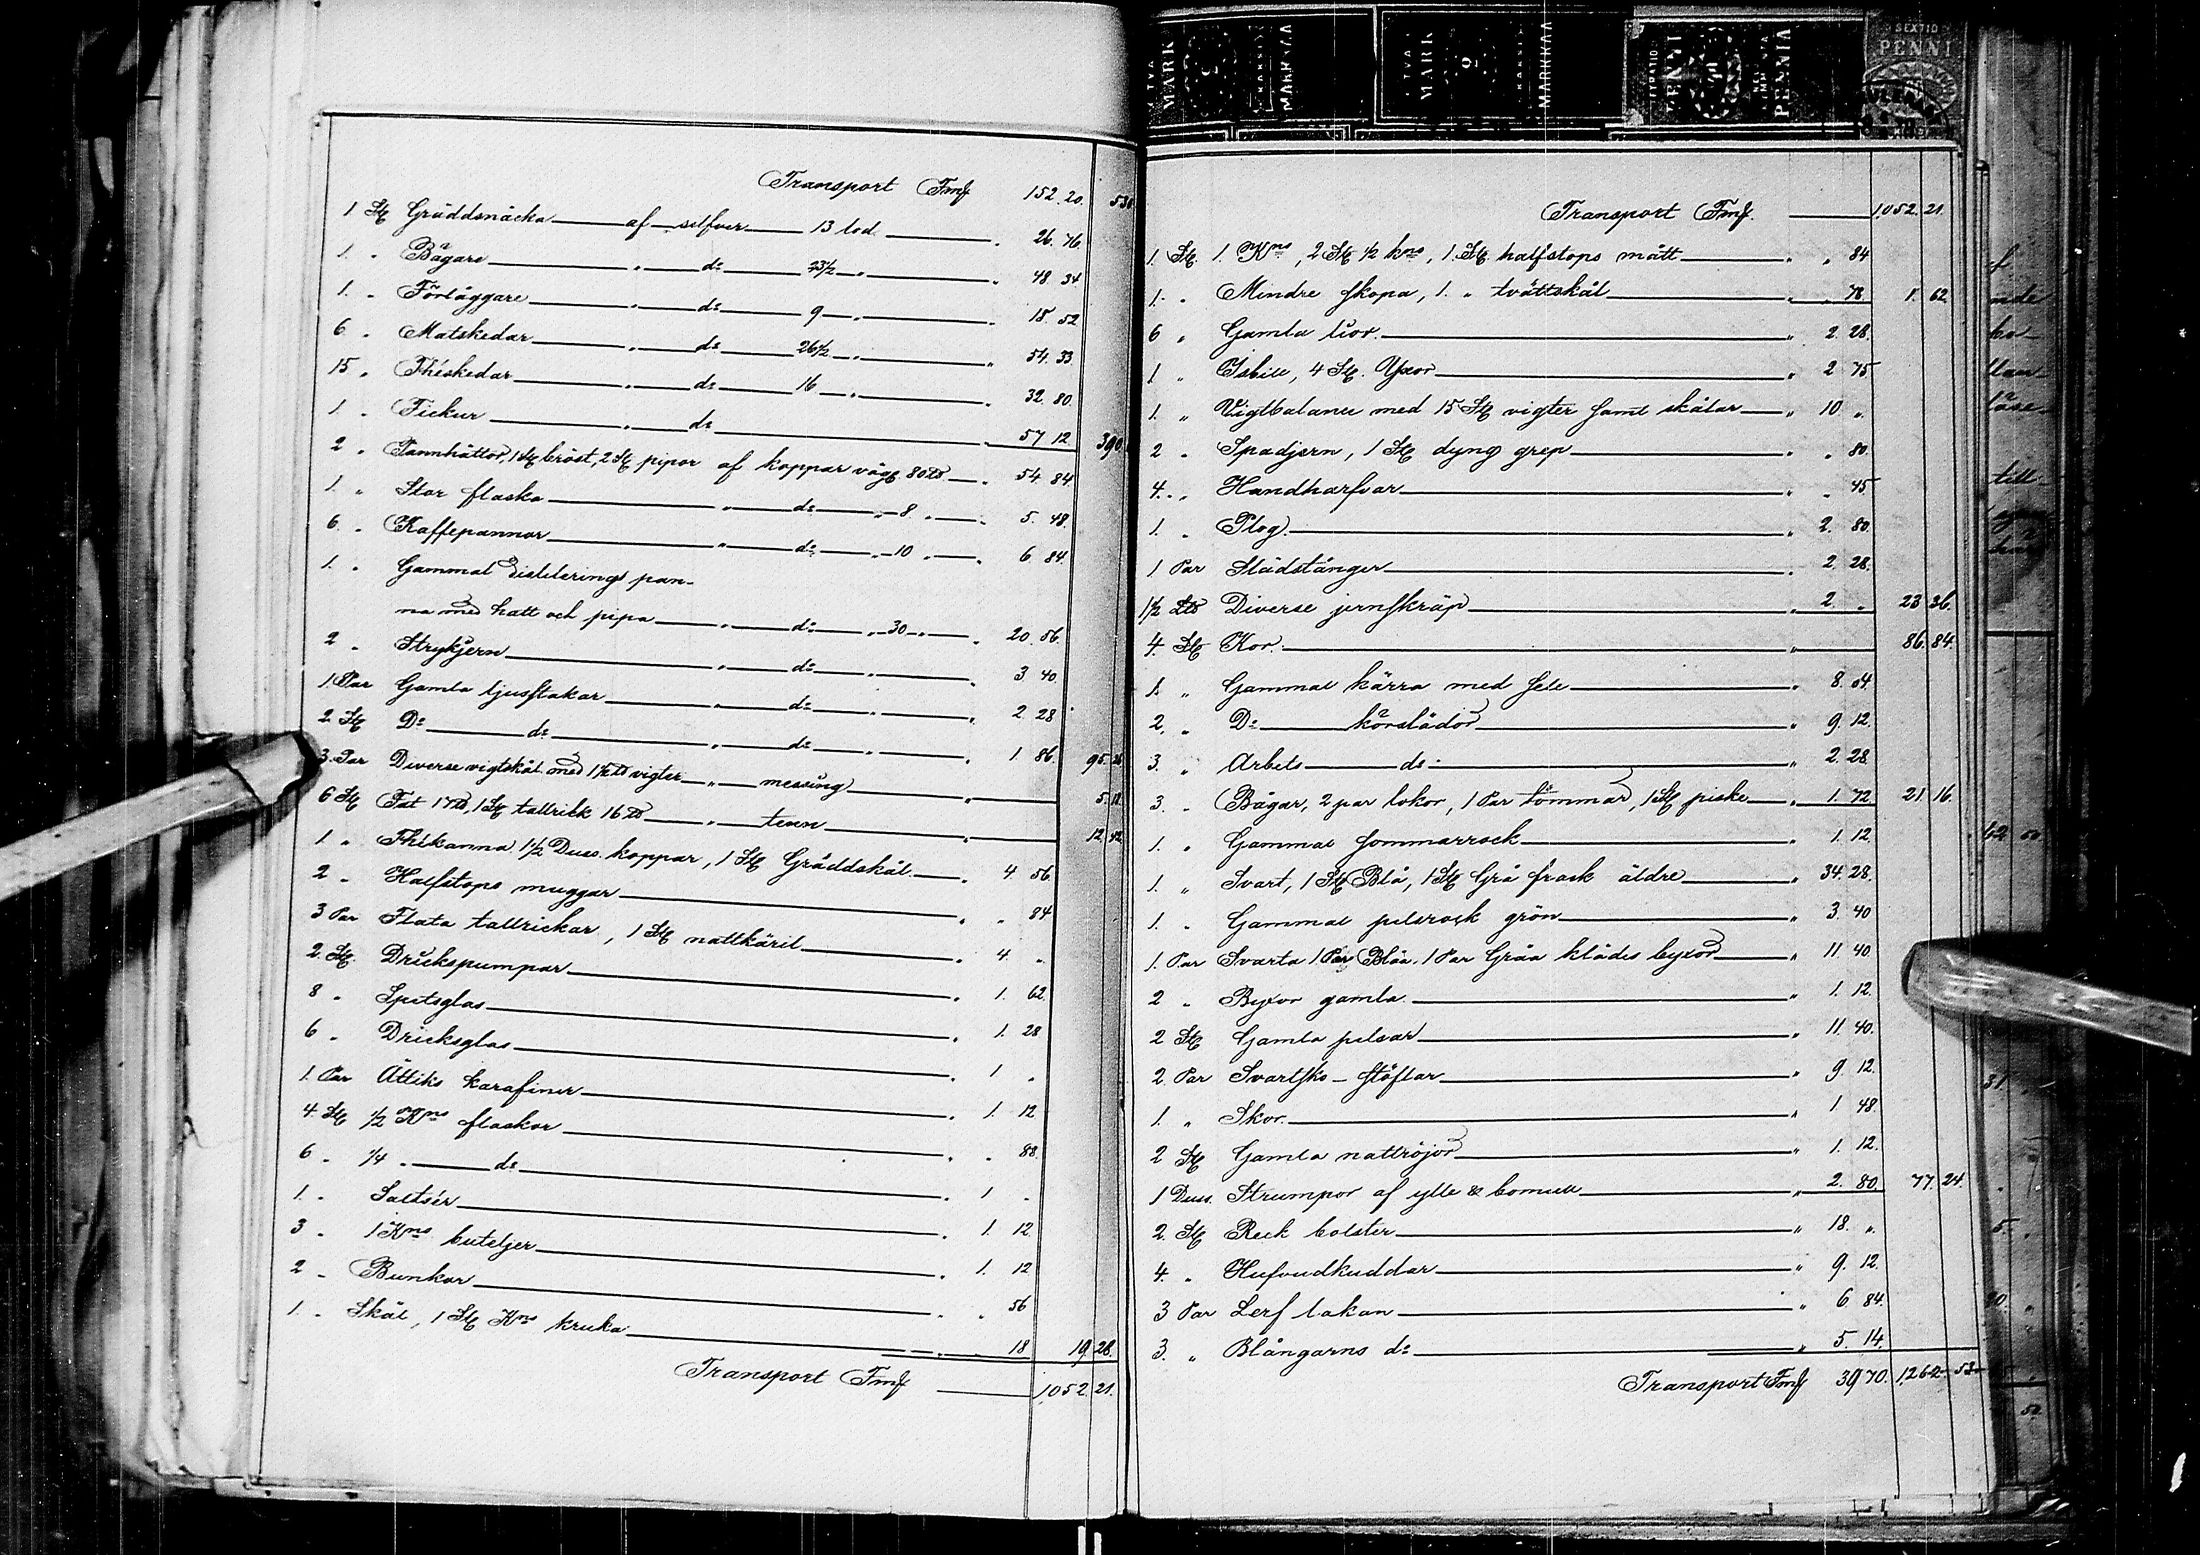 Transport Fmk 152. 20. 53
1 St Gräddsnäcka af silfver 13 lod " 26. 76
1. " Bägare " do 23½ " " 48. 34
1. " Förläggare " do 9 " " 18. 52
6 " Matskedar " do 26½ " " 54. 33
15 " Théskedar " do 16 " " 32. 80.
1 " Fickur " do " 57 12. 390
2 " Pannhattor, 1 St bröst, 2 St pipor af koppar väg. 80 ℔ " 54 84.
1. " Stor flaska " do " 8 " " 5. 48.
6. " Kaffepannor " do " 10 " " 6 84.
1. " Gammal distilerings pan-
na med hatt och pipa " do " 30 " " 20. 56.
2 " Strykjern " do " " 3 40.
1. Par Gamla ljusstakar " do " " 2 28
2. St Do do " do " " 1 86. 95. 26
3. Par Diverse vigtskål med 1½ ℔ vigter " messing " 5. 18.
6 St Fat 17 ℔, 1 St tallrick 16 ℔ " tenn " 12 42
1 " Thékanna 1½ Duss. koppar, 1 St Gräddskål " 4. 56
2 " Halfstops muggar " " 84
3 Par Flata tallrickar, 1 St nattkäril " 4. "
2. St. Drickspumpar " 1. 62.
8 " Spetsglas " 1. 28
6 " Dricksglas " 1 "
1. Par Ättiks karafiner " 1. 12
4. St ½ Kns flaskor " " 88.
6 " ¼ " do " 1 "
1. " Saltsér " 1. 12
3 " 1 Kns buteljer " 1. 12
2 " Bunkar " " 56
1. " Skål, 1 St Kns kruka " " 18 19. 28.
Transport Fmk 1,052 21.
SEXTIO
PENNI
MARK
MARKKAA
MARK
MARKKAA
PENNI
PENNIÄ
Transport Fmk. 1,052. 21.
1. St. 1. Kns, 2 St ½ kns, 1. St. halfstops mått " " 84
1. " Mindre skopa, 1. " tvättskål " " 78. 1. 62
6 " Gamla liar. " 2. 28.
1 " Isbill, 4 St. Yxor " 2 75
1. " Vigtbalance med 15 St vigter samt skålar " 10 "
2 " Spadjern, 1 St dyng grep " " 80.
4. " Handharfvar " " 45
1. " Plog. " 2. 80.
1 Par Städstänger " 2. 28.
1½ L℔ Diverse jernskräp " 2. " 23 36.
4. St Kor. " 86. 84.
1. " Gammal kärra med sele " 8. 04.
2, " Do körslädor " 9. 12.
3. " Arbets do " 2. 28.
3. " Bågar, 2 par lokor, 1 Par tömmar, 1 St piska " 1. 72. 21 16.
1. " Gammal sommarrock " 1. 12.
1. " Svart, 1 St Blå, 1 St Grå frack äldre " 34. 28.
1. " Gammal pelsrock grön " 3. 40
1. Par Svarta 1 Par Blåa. 1 Par Gråa klädes byxor " 11. 40
2 " Byxor gamla " 1. 12.
2 St Gamla pelsar " 11. 40.
2. Par Svartsko- stöflar " 9. 12.
1. " Skor. " 1 48.
2 St Gamla nattröjor " 1. 12.
1 Duss. Strumpor af ylle & bomull " 2. 80. 77. 24.
2. St Reck bolster " 18. "
4. " Hufvudkuddar " 9. 12.
3 Par Lerf lakan " 6. 84.
3. " Blångarns do " 5. 14.
Transport Fmk 39 70. 1,262. 53.